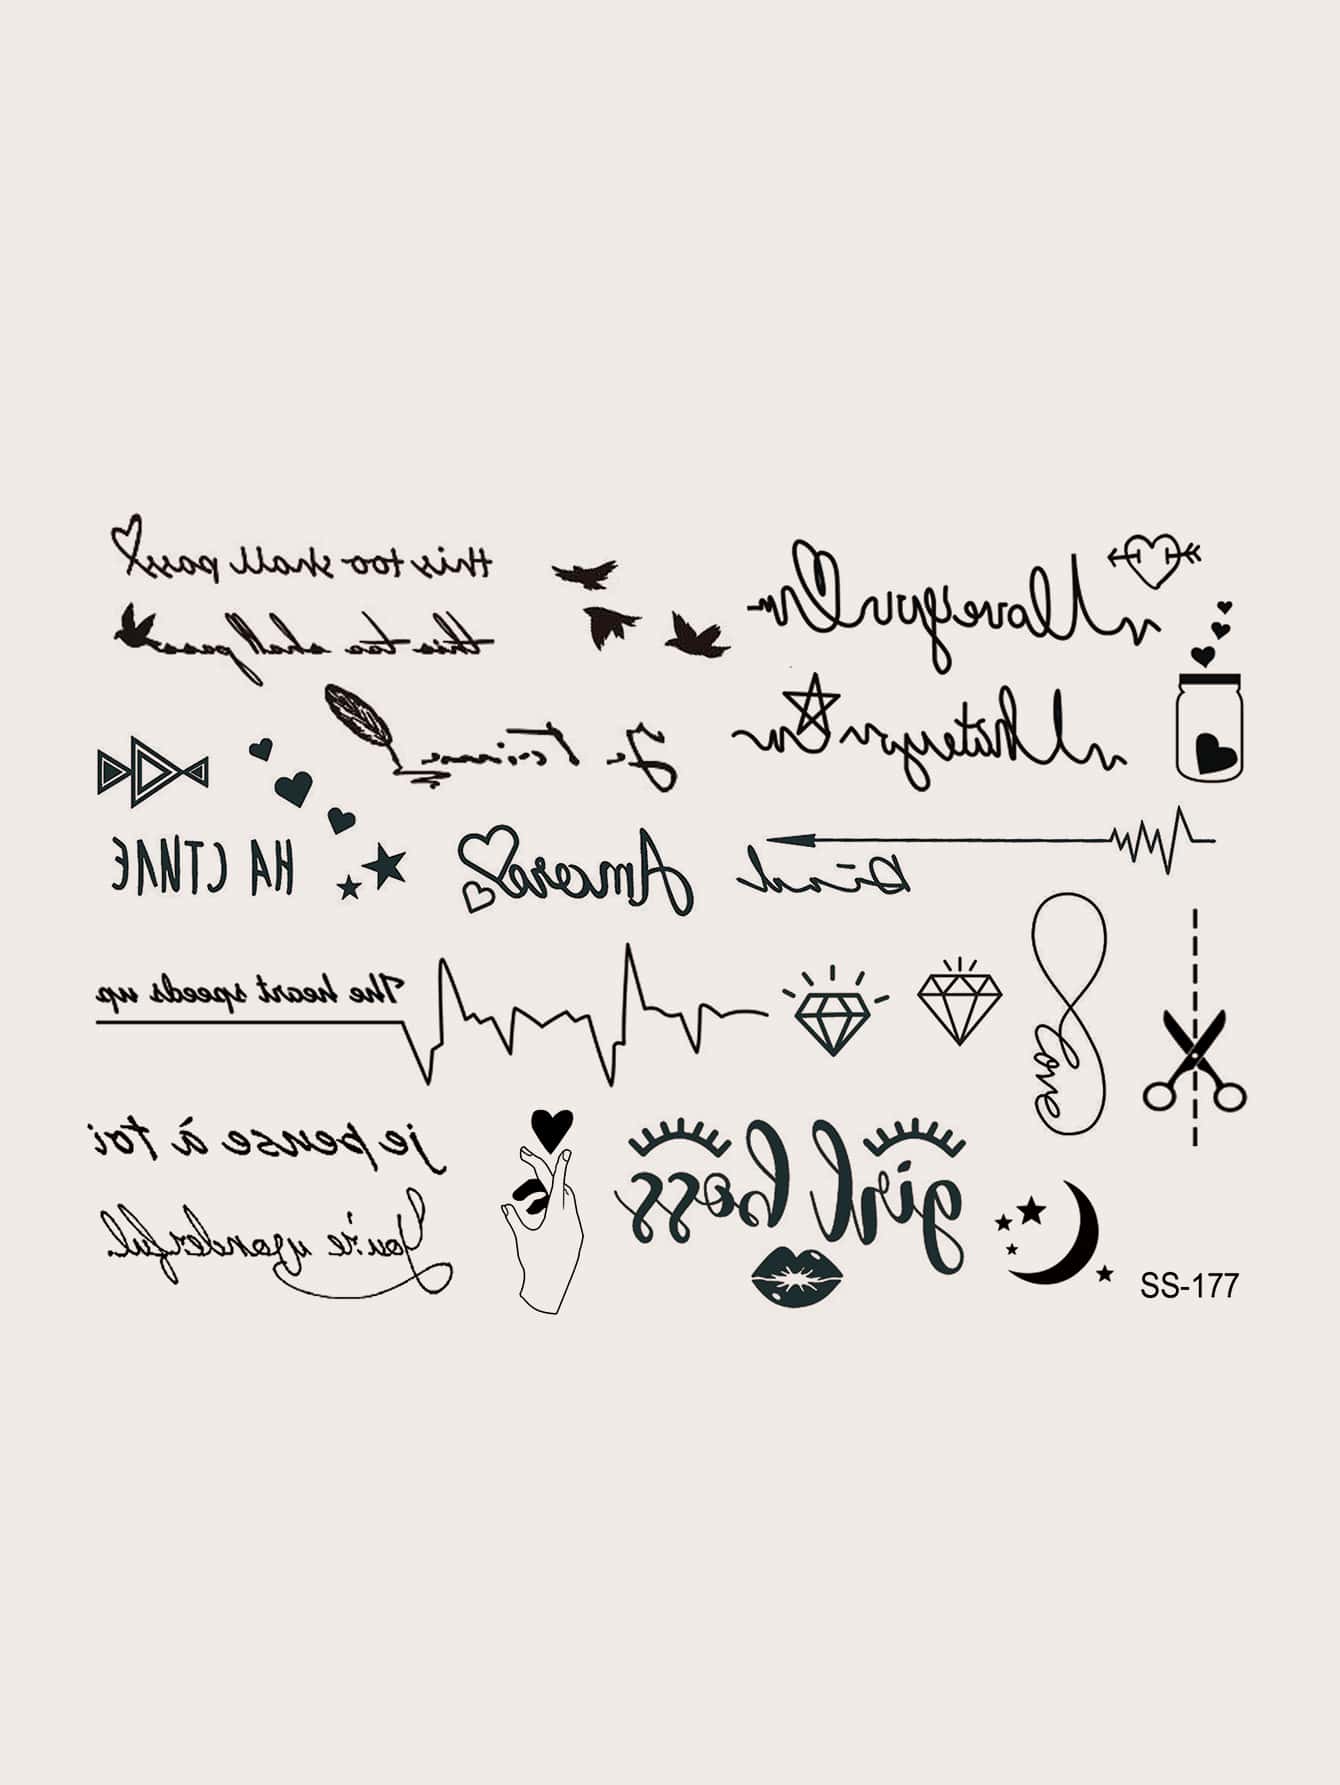 this too shall pass
I love you
this too shall pass
I hate you
НА СТИЛЕ
Amore
The heart speeds up
love
je pense à toi
girl boss
You're wonderful.
SS-177